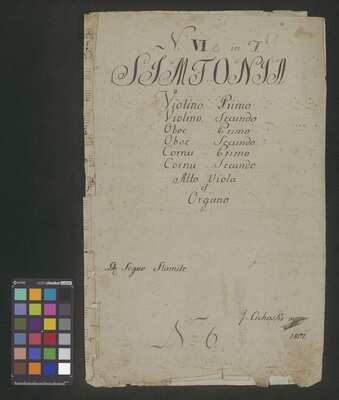 N. VI in F
SIMFONIA
Violino Primo
Violino Secundo
Oboe Primo
Oboe Secundo
Cornu Primo
Cornu Secundo
Alto Viola
et
Organo
Del Segno Stamitz
J. Cichoski
1802.
No 6